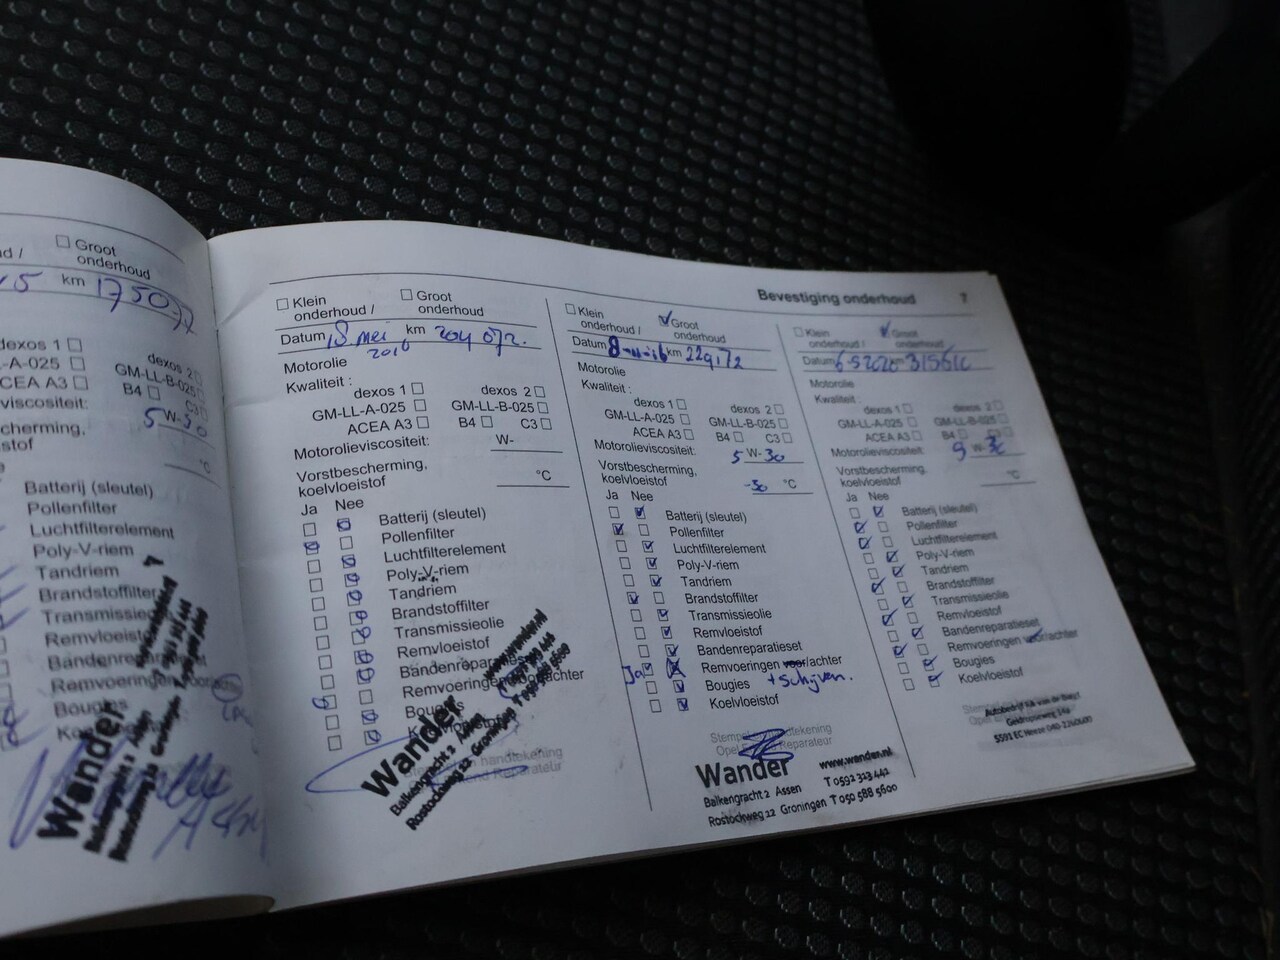 Groot
onderhoud
km 175077
dexos 1
dexos 2
GM-LL-B-025
ACEA A3
B4
C3
5 W-30
°C
Batterij (sleutel)
Pollenfilter
Luchtfilterelement
Poly-V-riem
Tandriem
Brandstoffilter
Transmissieolie
Remvloeistof
Bandenreparatieset
Remvoeringen
Bougies
Wander
Bevestiging onderhoud 7
Klein
onderhoud /
Groot
onderhoud
Datum 18 mei km 204 072.
2016
Motorolie
Kwaliteit :
dexos 1 dexos 2
GM-LL-A-025 GM-LL-B-025
ACEA A3 B4 C3
Motorolieviscositeit: W-
Vorstbescherming,
koelvloeistof °C
Ja Nee
Batterij (sleutel)
Pollenfilter
Luchtfilterelement
Poly-V-riem
Tandriem
Brandstoffilter
Transmissieolie
Remvloeistof
Bandenreparatieset
Remvoeringen voor/achter
Bougies
Wander
Balkengracht 2 Assen
Rostockweg 12 Groningen T 050 588 5600
www.wander.nl
Klein
onderhoud /
Groot
onderhoud
Datum 8-11-16 km 229172
Motorolie
Kwaliteit :
dexos 1 dexos 2
GM-LL-A-025 GM-LL-B-025
ACEA A3 B4 C3
Motorolieviscositeit: 5 W-30
Vorstbescherming,
koelvloeistof -30 °C
Ja Nee
Batterij (sleutel)
Pollenfilter
Luchtfilterelement
Poly-V-riem
Tandriem
Brandstoffilter
Transmissieolie
Remvloeistof
Bandenreparatieset
Ja Remvoeringen voor/achter
Bougies + Schijven.
Koelvloeistof
Stempel en handtekening
Opel Erkend Reparateur
Wander www.wander.nl
Balkengracht 2 Assen T 0592 323 442
Rostockweg 12 Groningen T 050 588 5600
Klein
onderhoud /
Groot
onderhoud
Datum 6-5 2020 km
Motorolie
Kwaliteit :
dexos 1 dexos 2
GM-LL-A-025 GM-LL-B-025
ACEA A3 B4 C3
Motorolieviscositeit: W-30
Vorstbescherming,
koelvloeistof °C
Ja Nee
Batterij (sleutel)
Pollenfilter
Luchtfilterelement
Poly-V-riem
Tandriem
Brandstoffilter
Transmissieolie
Remvloeistof
Bandenreparatieset
Remvoeringen voor/achter
Bougies
Koelvloeistof
5591 EC Heeze 040-2260600